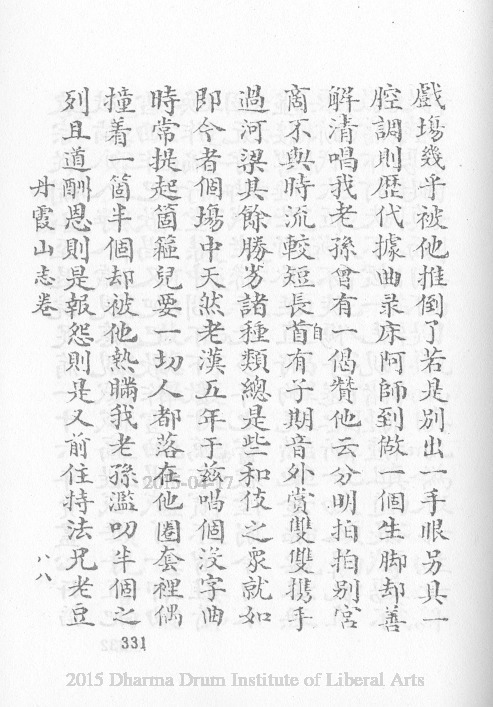 戲塲幾乎被他推倒了若是別出一手眼另具一
腔調則歷代據曲彔床阿師到做一個生脚却善
解清唱我老孫曾有一偈贊他云分明拍拍别宮
商不與時流較短長自有子期音外賞雙雙携手
過河梁其餘勝劣諸種類總是些和伎之衆就如
即今者個塲中天然老漢五年于兹唱個没字曲
時常提起箇箍兒要一切人都落在他圈套裡偶
撞着一箇半個却被他熱瞞我老孫濫叨半個之
列且道酬恩則是報怨則是又前住持法兄老豆
丹霞山志卷
八八
331
2015-04-17
2015 Dharma Drum Institute of Liberal Arts